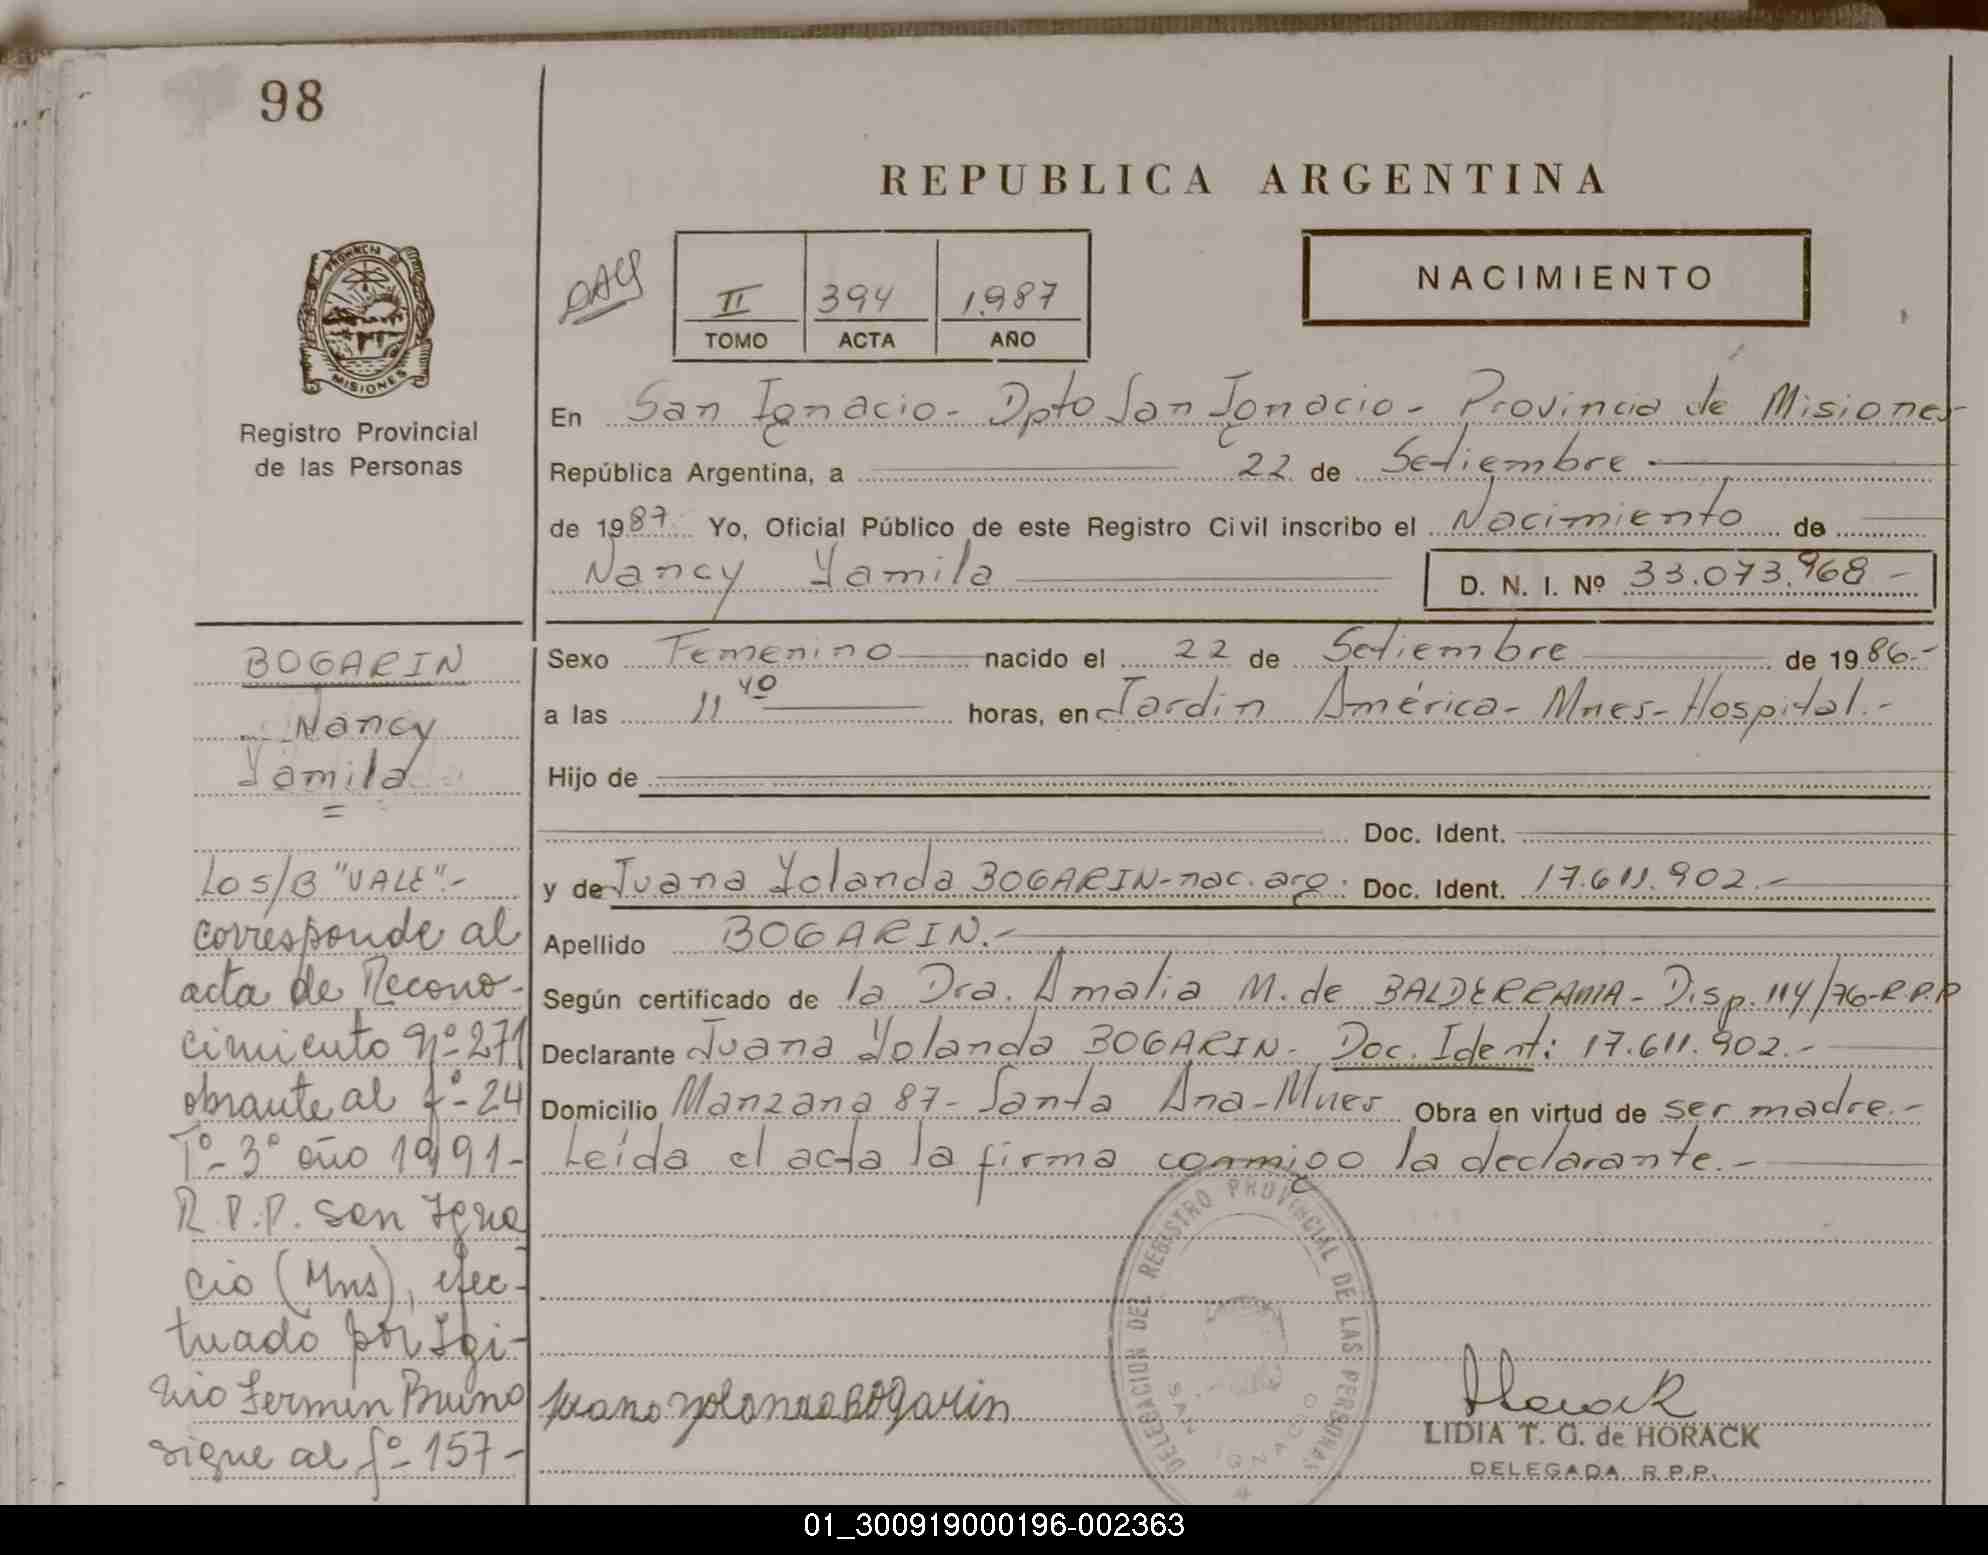 98
REPUBLICA ARGENTINA
PROVINCIA DE
MISIONES
Registro Provincial
de las Personas
II 394 1.987
TOMO ACTA AÑO
NACIMIENTO
En San Ignacio - Dpto San Ignacio - Provincia de Misiones
República Argentina, a 22 de Setiembre
de 1987 Yo, Oficial Público de este Registro Civil inscribo el Nacimiento de
Nancy Yamila D. N. I. Nº 33.073.968 -
Sexo Femenino nacido el 22 de Setiembre de 1986.-
a las 11 40 horas, en Jardin América - Mnes - Hospital.-
Hijo de
Doc. Ident.
y de Juana Yolanda BOGARIN - nac. arg. Doc. Ident. 17.611.902.-
Apellido BOGARIN.-
Según certificado de la Dra. Amalia M. de BALDERRAMA - Disp. 114/76-R.P.P
Declarante Juana Yolanda BOGARIN - Doc. Ident: 17.611.902.-
Domicilio Manzana 87 - Santa Ana - Mnes Obra en virtud de ser madre.-
Leída el acta la firma conmigo la declarante.-
BOGARIN
Nancy
Yamila
=
Lo s/B "VALE".-
corresponde al
acta de Recono-
cimiento nº 271
obrante al fº 24
Tº 3º año 1991-
R.P.P. San Igna
cio (Mns), efec-
tuado por Igi-
nio Fermin Bruno
sigue al fº 157-
Juana Yolanda BOgarin
DELEGACION DEL REGISTRO PROVINCIAL DE LAS PERSONAS
SAN IGNACIO
Horack
LIDIA T. G. de HORACK
DELEGADA R.P.P.
01_300919000196-002363